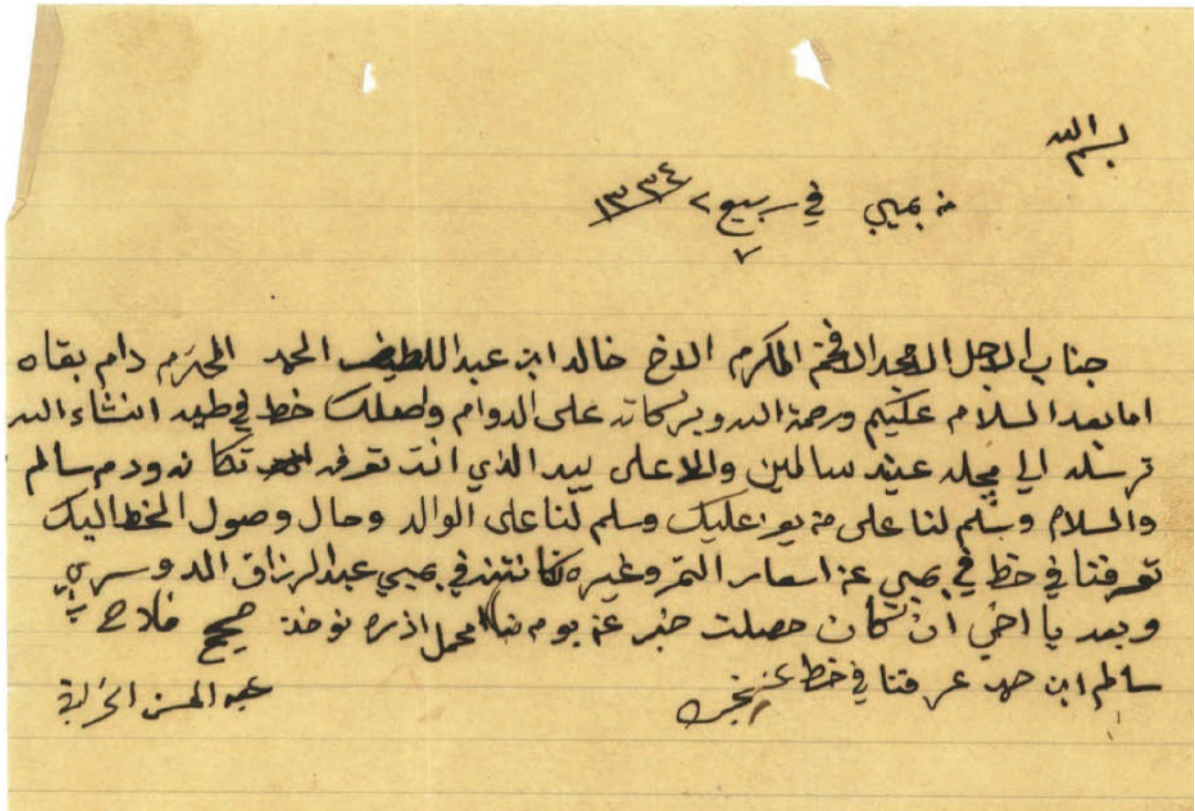 بسم الله
من بمبي في ربيع ٢ ١٣٣٤
٧
جناب الاجل الامجد الافخم المكرم الاخ خالد ابن عبد اللطيف الحمد المحترم دام بقاه
اما بعد السلام عليكم ورحمة الله وبركاته على الدوام وصلك خط في طيه انشاء الله
ترسله الي محله عند سالمين والا على ييد الذي انت تعرفه ودم سالم
والسلام وسلم لنا على من يعز عليك وسلم لنا على الوالد وحال وصول الخط اليك
تعرفنا في خط في بمبي عن اسعار التمر وغيره في بمبي عبد الرزاق الدوسري
وبعد يا اخي ان كان حصلت خبر عن بوم محمل نوخذه فلاح
سالم ابن حمد عرفنا في خط عن
عبد المحسن الخرافي